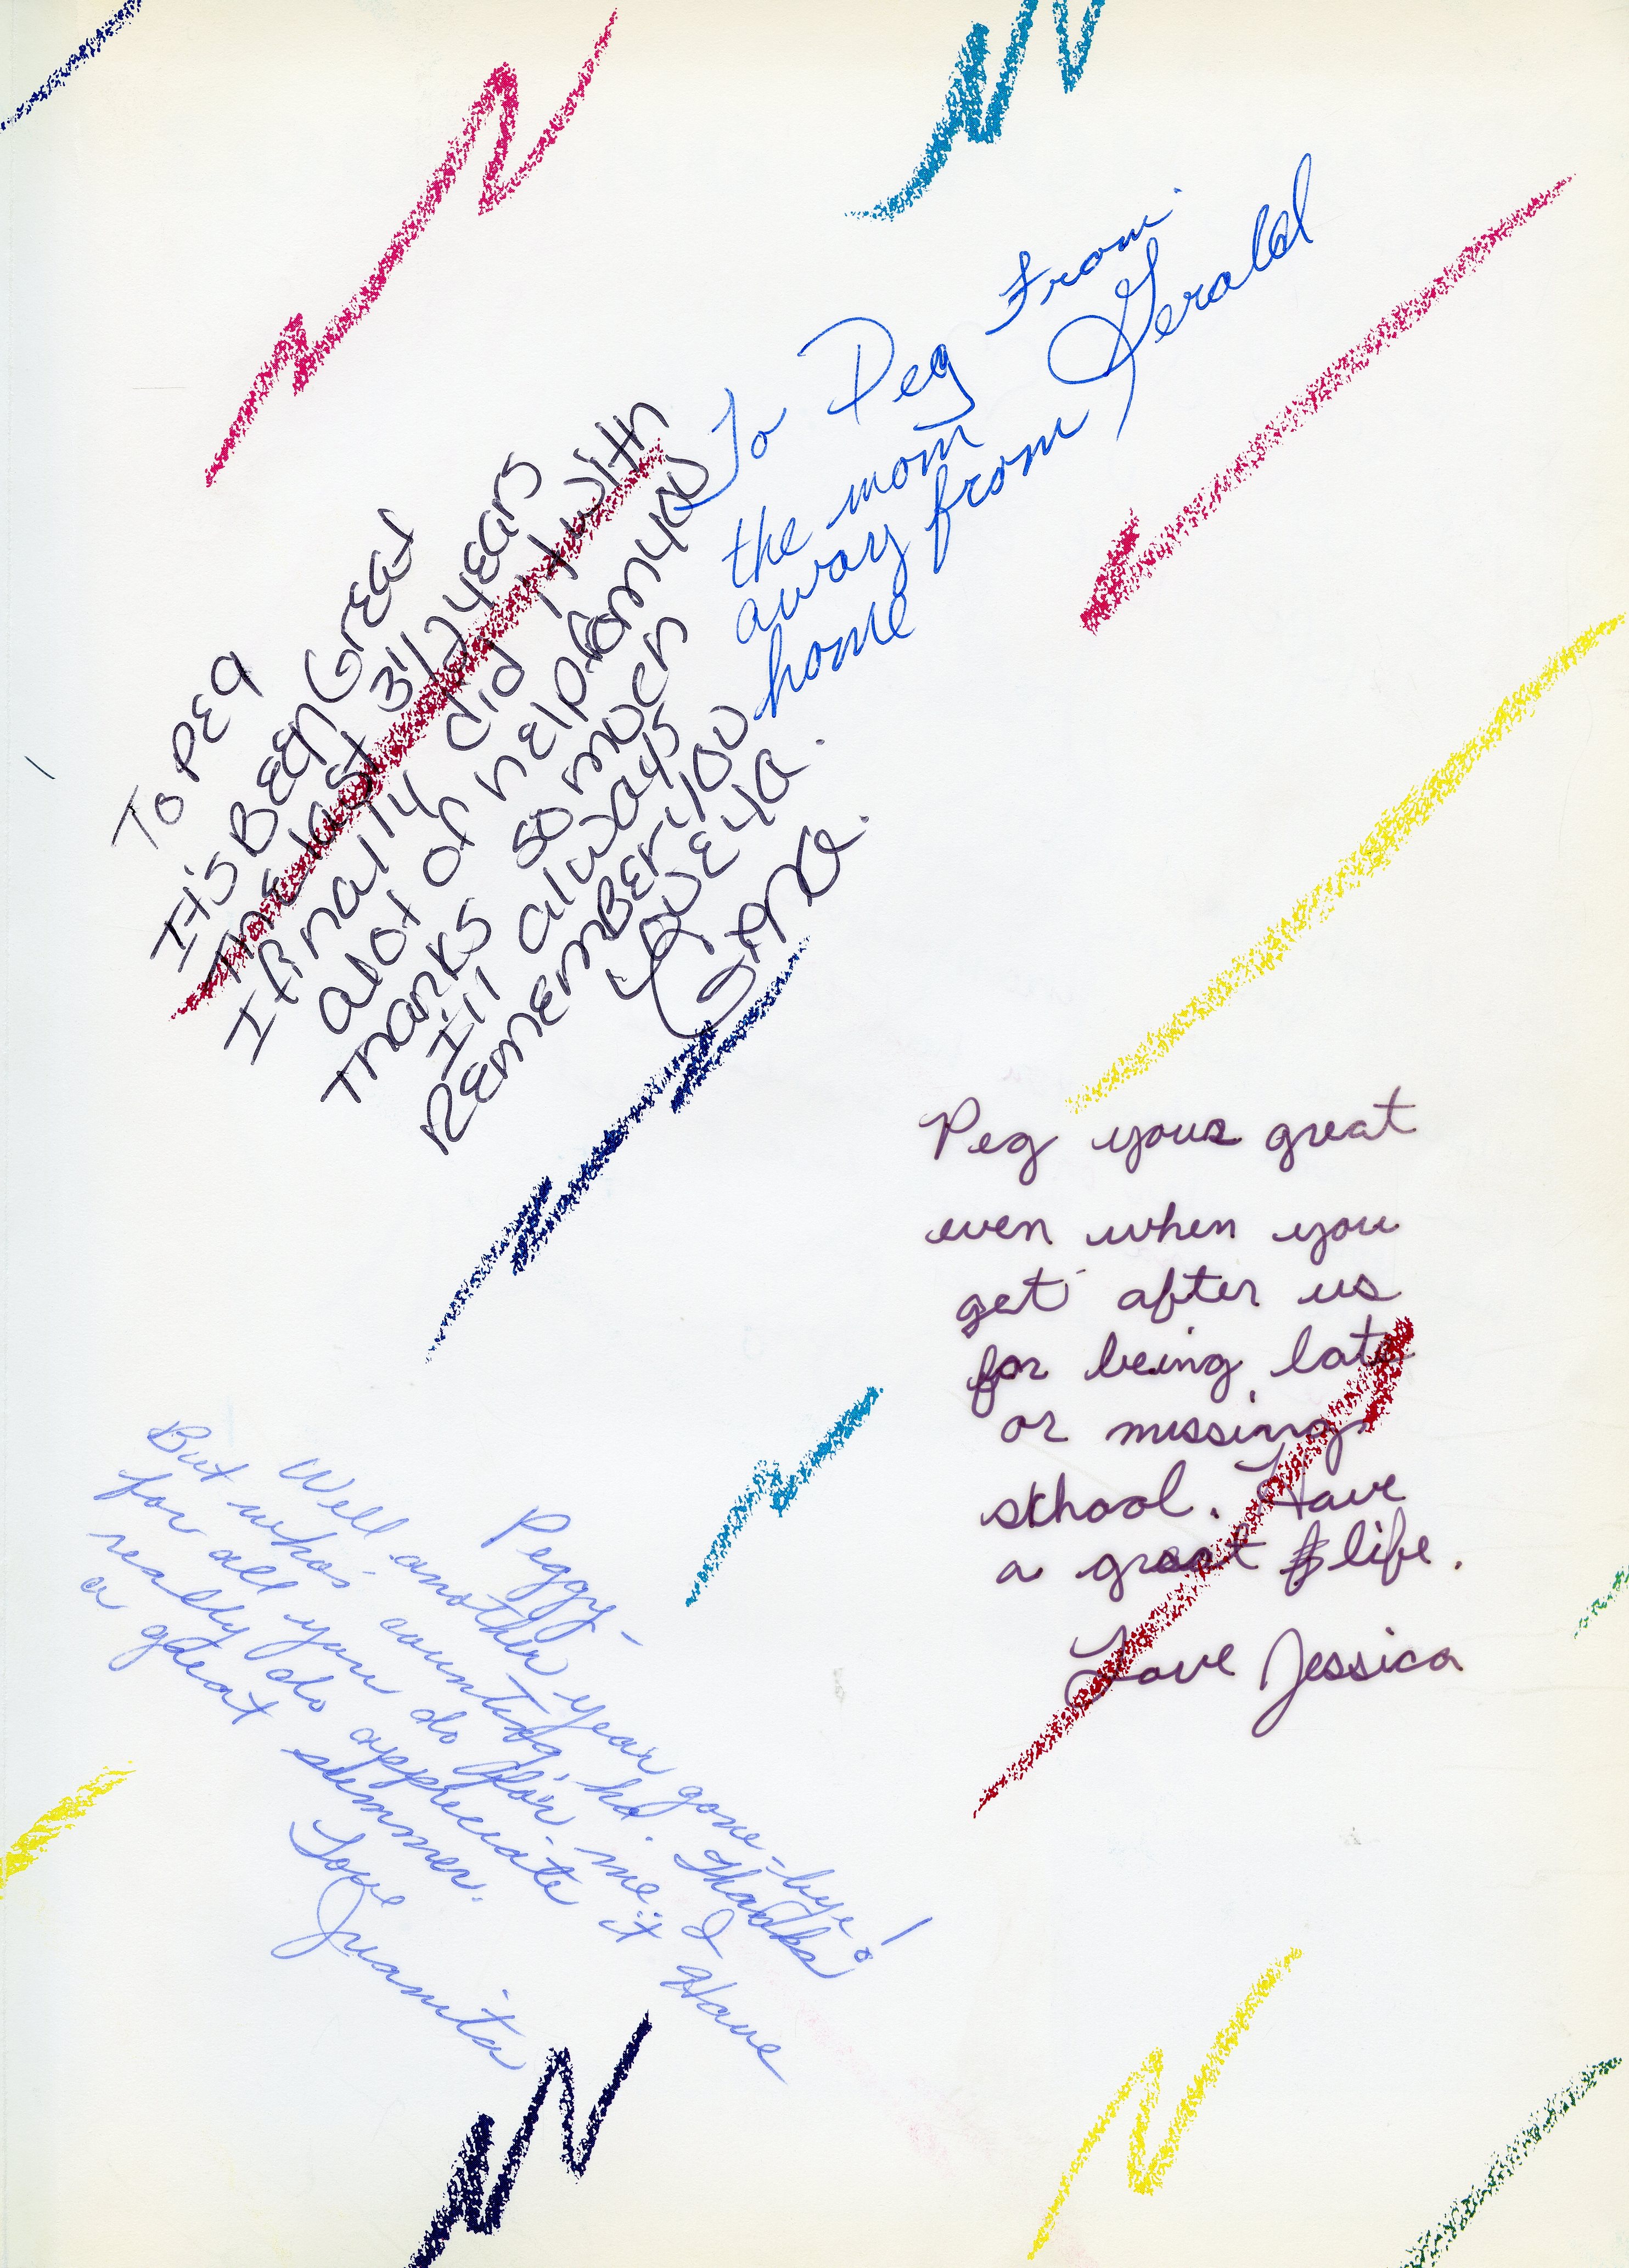 To Peg
It's Been Great
The last 3 1/2 years
I finally did it with
alot of help from you
Thanks so much
I'll always
Remember you
Love ya.
Gena.
To Peg From
Gerald
the mom
away from
home
Peg your great
even when you
get after us
for being late
or missing
school. Have
a great life.
Love Jessica
Peggy -
Well another year gone-bye!
But who's counting, ha. Thanks
for all you do for me. I
really do appreciate it. Have
a great summer.
Love
Juanita